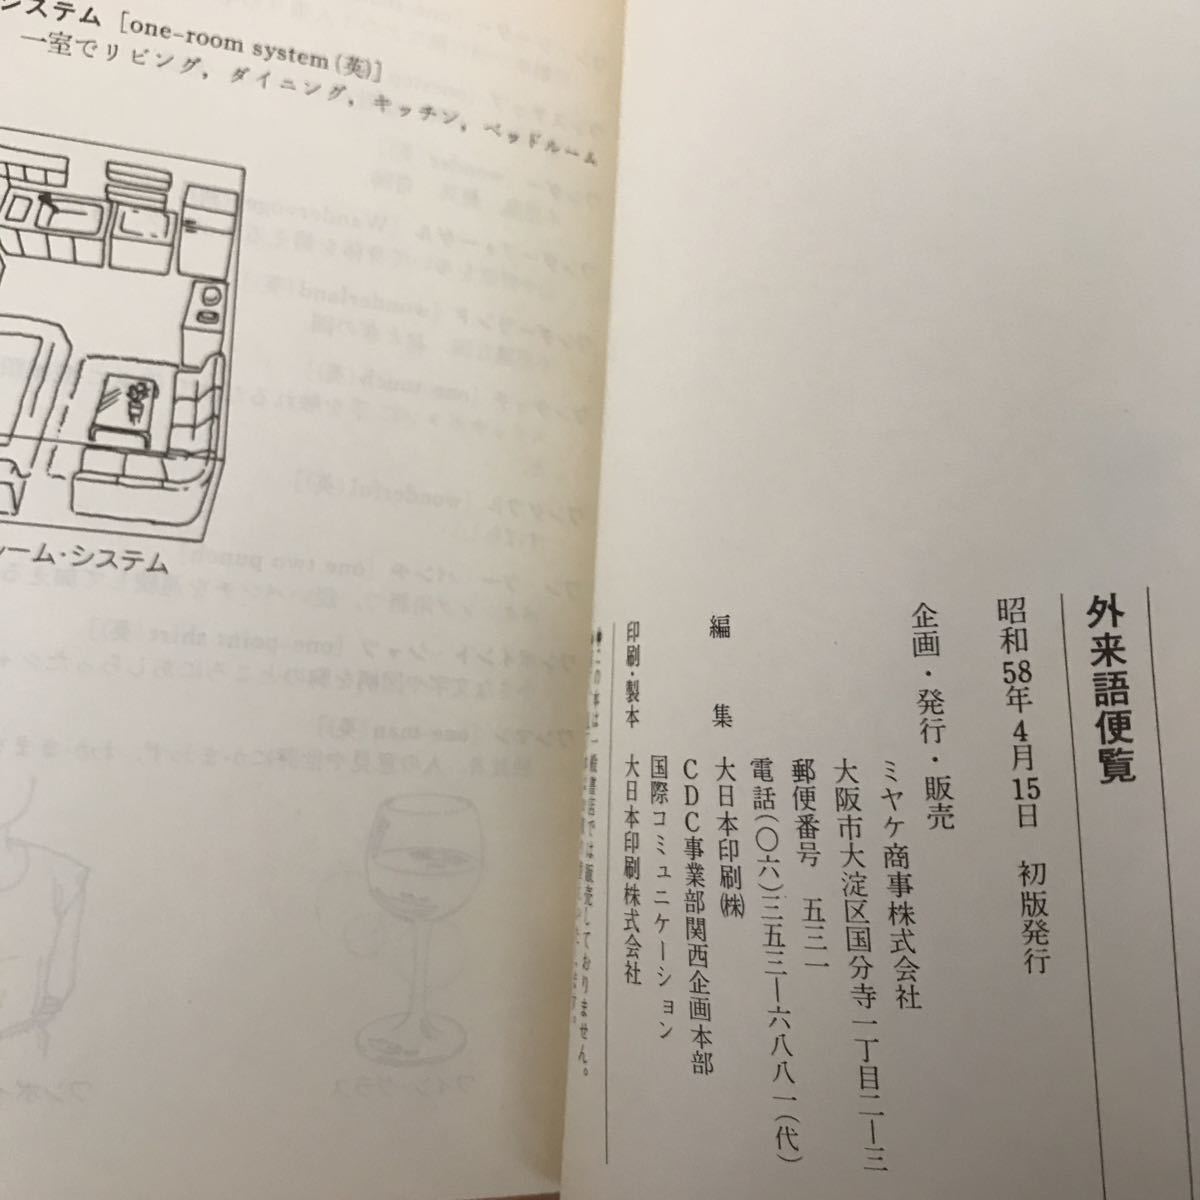 システム [one-room system(英)]
一室でリビング，ダイニング，キッチン，ベッドルーム
ルーム・システム
外来語便覧
昭和58年4月15日　初版発行
企画・発行・販売
ミヤケ商事株式会社
大阪市大淀区国分寺一丁目二―三
郵便番号　五三一
電話(〇六)三五三―六八八一(代)
編集　大日本印刷㈱
CDC事業部関西企画本部
国際コミュニケーション
印刷・製本　大日本印刷株式会社
●この本は一般書店では販売しておりません。